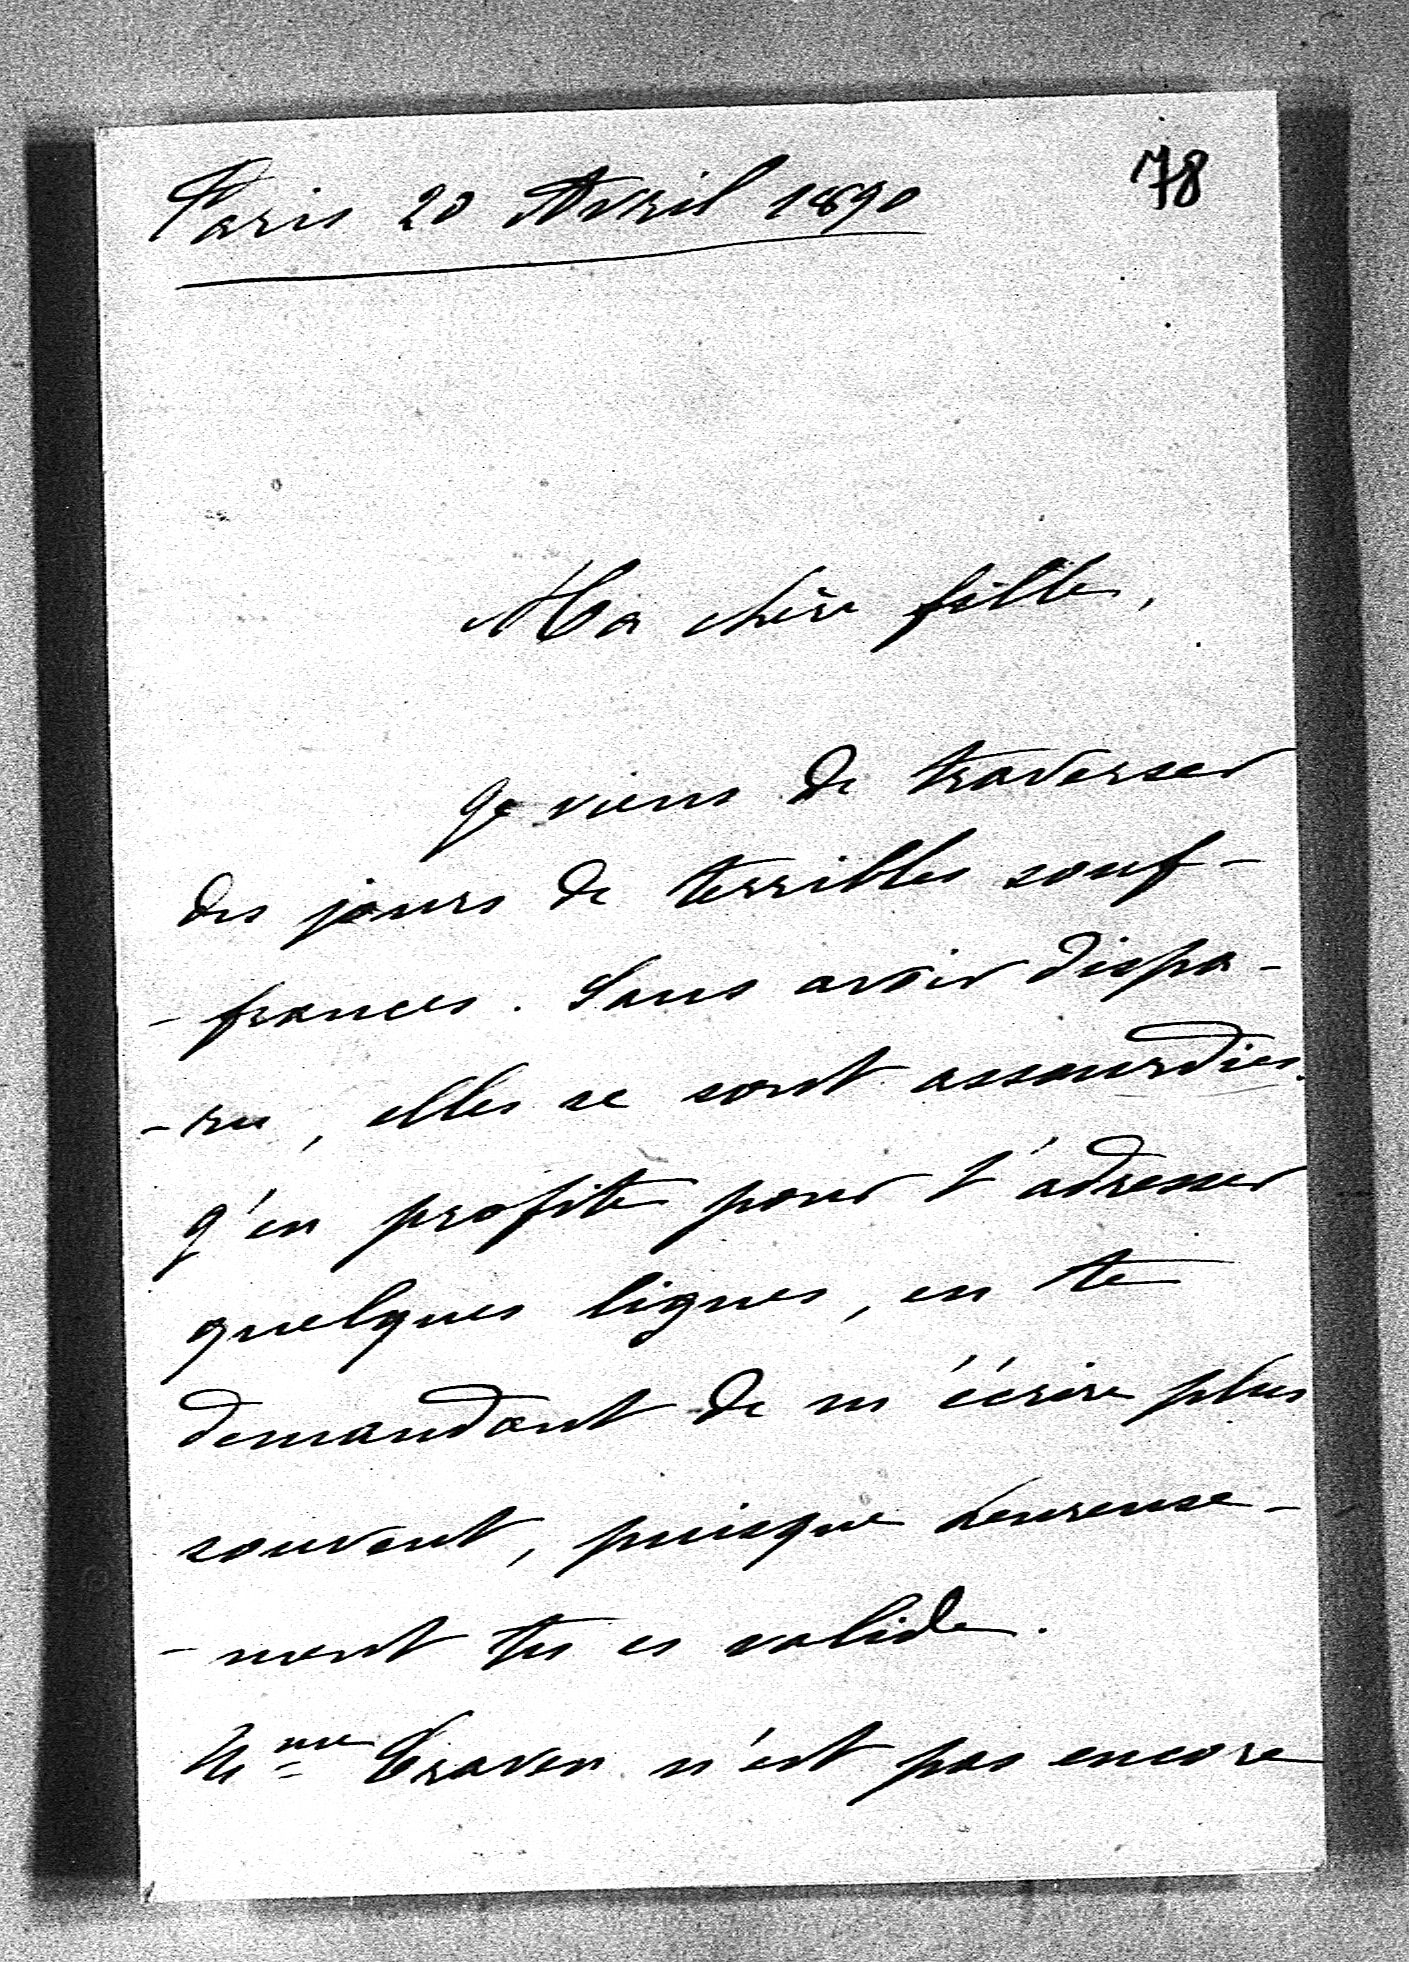 78
Paris 20 Avril 1890
Ma chère fille,
Je viens de traverser
des jours de terribles souf-
-frances. Sans avoir dispa-
-ru, elles se sont assourdies.
J'en profite pour t'adresser
quelques lignes, en te
demandant de m'écrire plus
souvent, puisque heureuse-
-ment tu es valide.
Mme n'est pas encore